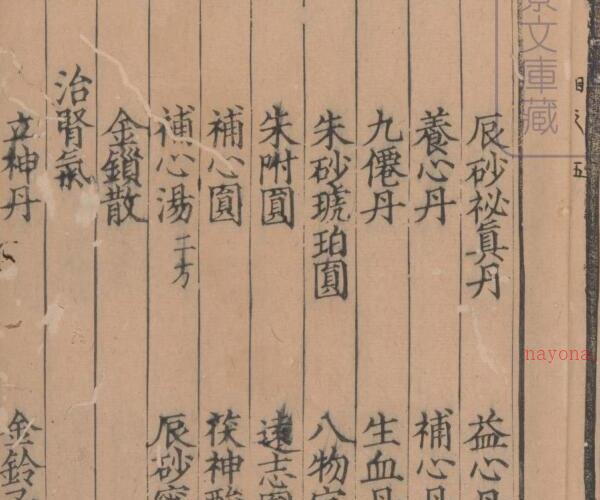 景文庫藏
目之五
辰砂祕眞丹
益心丹
養心丹
補心丹
九僊丹
生血丹
朱砂琥珀圓
八物定
朱附圓
遠志圓
補心圓
茯神
補心湯二方
辰砂
金鎖散
治腎氣
立神丹
金鈴子
nayona